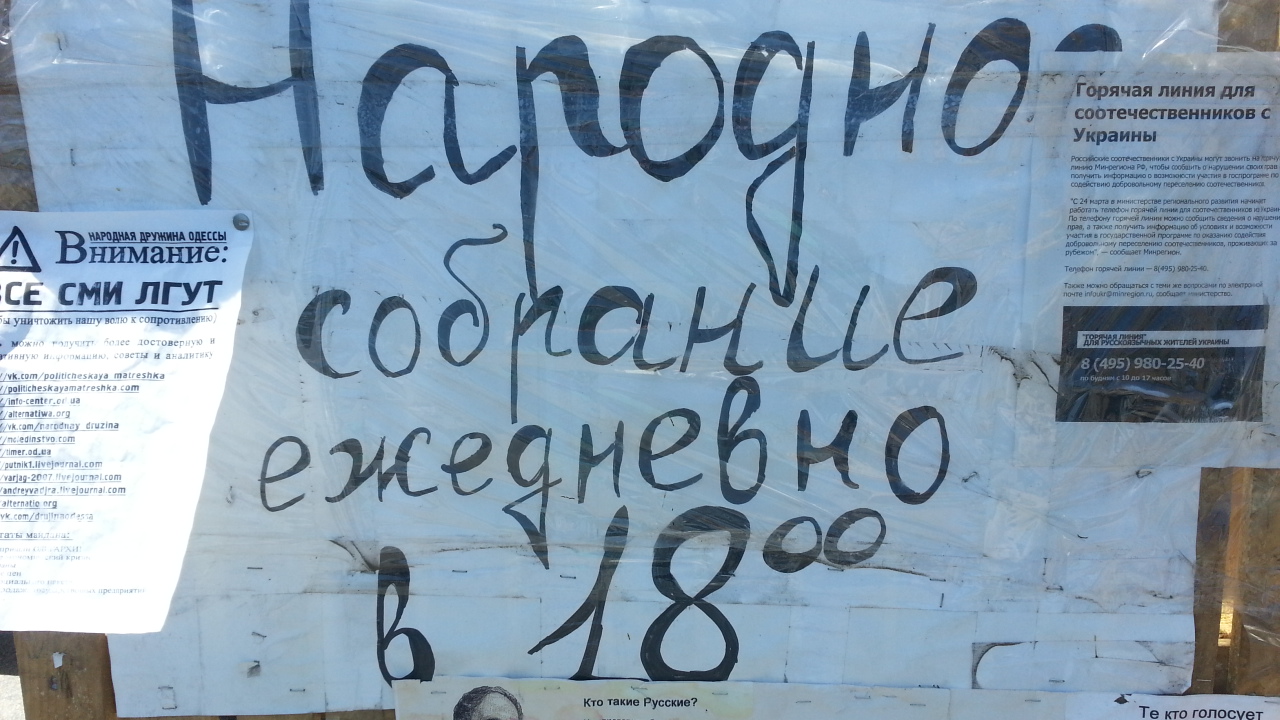 Народно
собрание
ежедневно
в 18 00
НАРОДНАЯ ДРУЖИНА ОДЕССЫ
Внимание:
ВСЕ СМИ ЛГУТ
уничтожить нашу волю к сопротивлению)
можно получать более достоверную и
информацию, советы и аналитику
//vk.com/politicheskaya_matreshka
//politicheskayamatreshka.com
//info-center.od.ua
//alternatiwa.org
//vk.com/narodnay_druzina
//timer.od.ua
//putnik1.livejournal.com
//varjag-2007.livejournal.com
//andreyvadjra.livejournal.com
Горячая линия для
соотечественников с
Украины
Российские соотечественники с Украины могут звонить на горячую
линию Минрегиона РФ, чтобы сообщить о нарушении своих прав
получить информацию о возможности участия в госпрограмме по
содействию добровольному переселению соотечественников.
"С 24 марта в министерстве регионального развития начинает
работать телефон горячей линии для соотечественников из
По телефону горячей линии можно сообщить сведения о нарушении
прав, а также получить информацию об условиях и возможности
участия в государственной программе по оказанию содействия
добровольному переселению соотечественников, проживающих за
рубежом", — сообщает Минрегион.
Телефон горячей линии — 8(495) 980-25-40.
Также можно обращаться с теми же вопросами по электронной
почте infoukr@minregion.ru, сообщает министерство.
"ГОРЯЧАЯ ЛИНИЯ"
ДЛЯ РУССКОЯЗЫЧНЫХ ЖИТЕЛЕЙ УКРАИНЫ
8 (495) 980-25-40
по будням с 10 до 17 часов
Кто такие Русские?
Те кто голосует